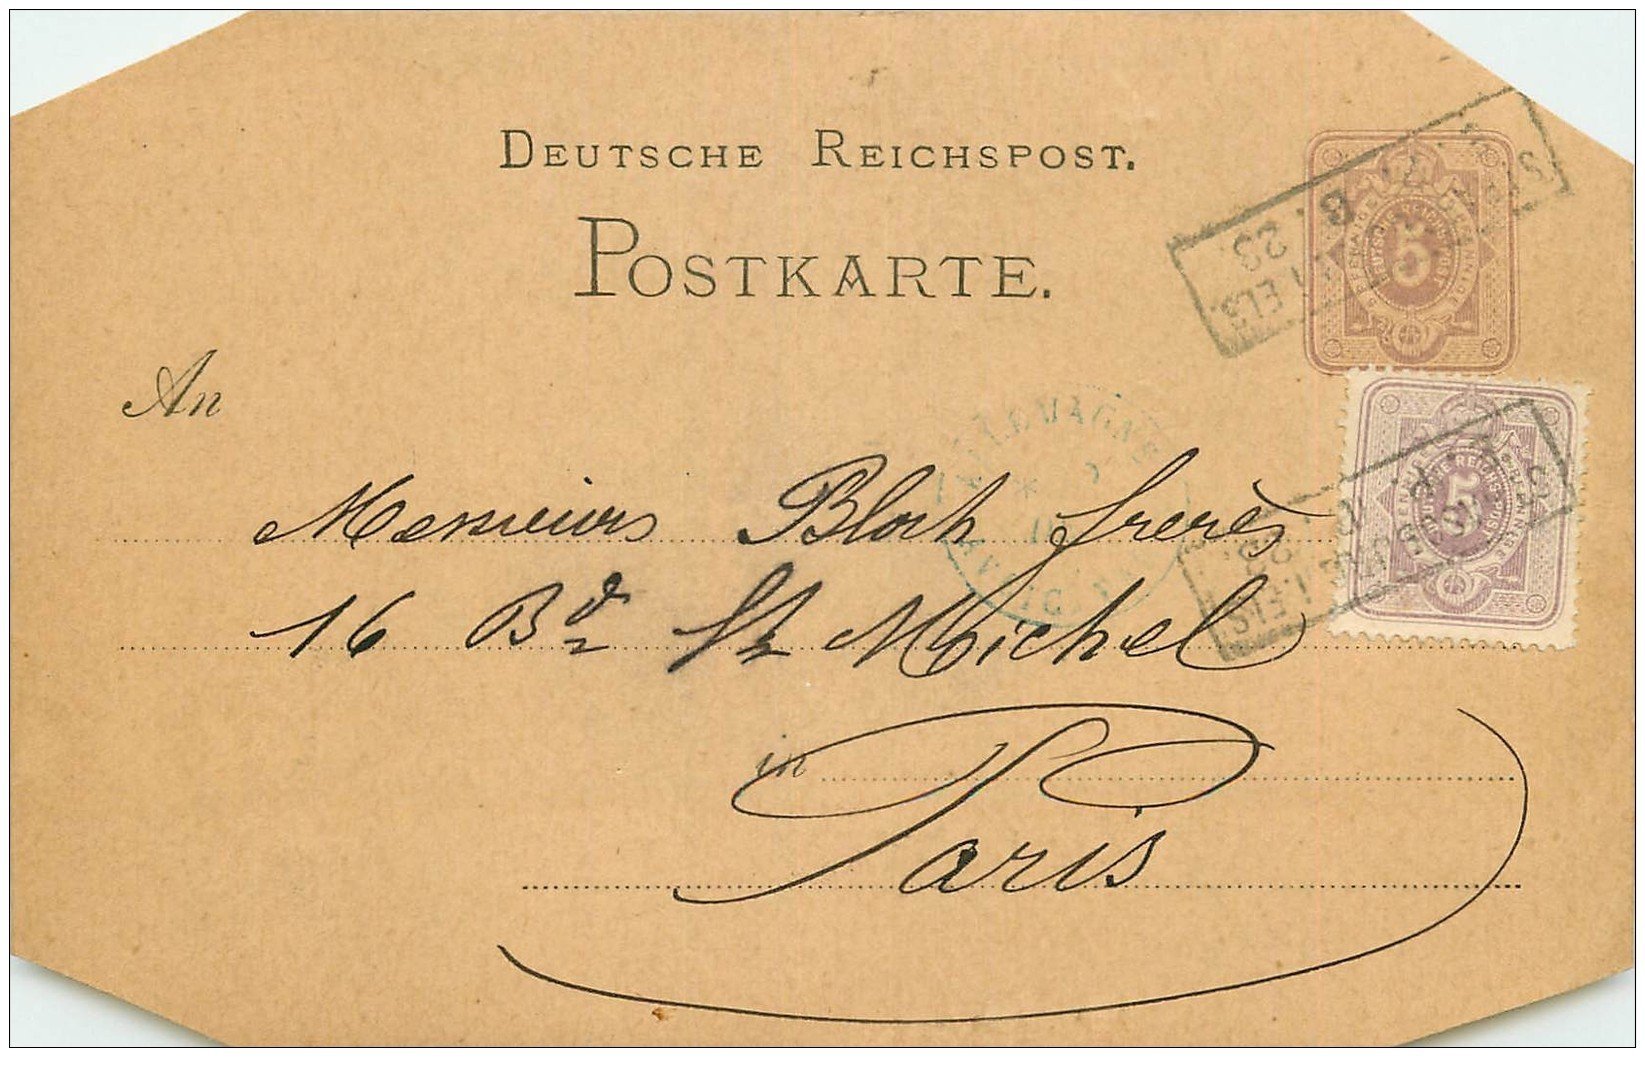 DEUTSCHE REICHSPOST.
POSTKARTE.
An
Messieurs Bloch frerès
16 Bd St Michel
in
Paris
5
5
I. ELS.
23
I. ELS.